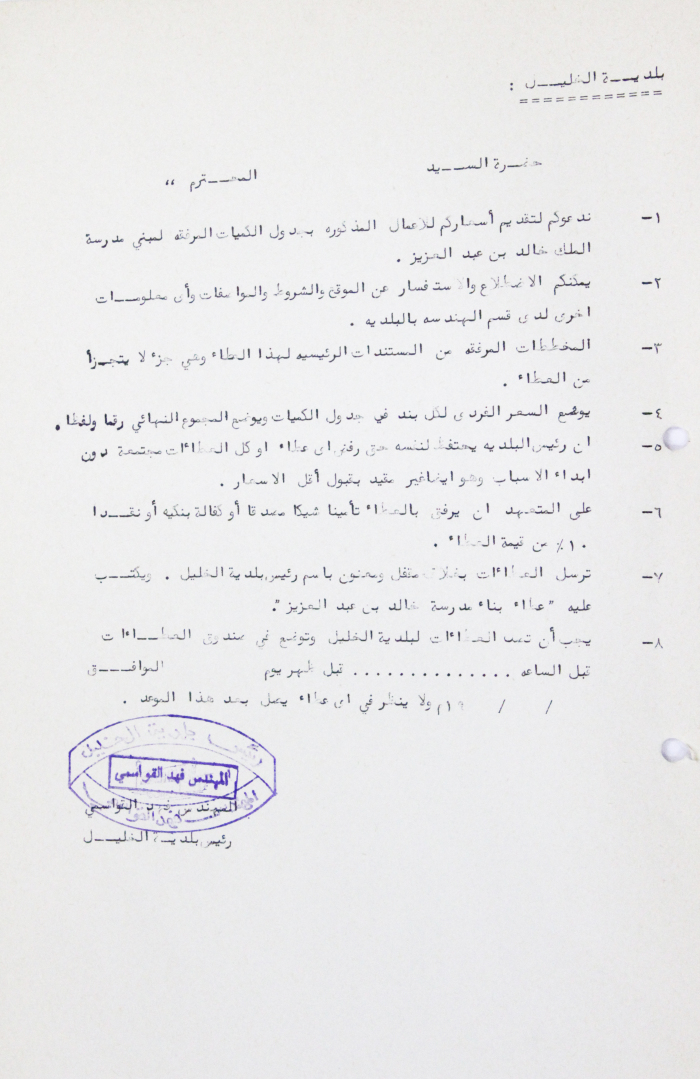 بلديــــة الخليــــل :
============
حضــرة الســـيد المحــــترم ،،
١- ندعوكم لتقديم أسعاركم للاعمال المذكوره بجدول الكميات المرفقه لمبني مدرسة
الملك خالد بن عبد العزيز .
٢- يمكنكم الاطلاع والاستفسار عن الموقع والشروط والمواصفات وأى معلومـــات
اخرى لدى قسم الهندسه بالبلديه .
٣- المخططات المرفقه من المستندات الرئيسيه لهذا العطاء وهي جزء لا يتجــزأ
من العطاء .
٤- يوضع السعر الفردى لكل بند في جدول الكميات ويوضع المجموع النهائي رقما ولفظا .
٥- ان رئيس البلديه يحتفظ لنفسه حق رفض اى عطاء او كل العطاءات مجتمعة دون
ابداء الاسباب وهو ايضا غير مقيد بقبول أقل الاسعار .
٦- على المتعهد ان يرفق بالعطاء تأمينا شيكا مصدقا أو كفالة بنكيه أو نقــدا
١٠٪ من قيمة العطاء .
٧- ترسل العطاءات بغلاف مقفل ومعنون باسم رئيس بلدية الخليل . ويكتـــب
عليه "عطاء بناء مدرسة خالد بن عبد العزيز ".
٨- يجب أن تصل العطاءات لبلدية الخليل وتوضع في صندوق العطــاءات
قبل الساعه .............. قبل ظهر يوم الموافــــق
/ / ١٩م ولا ينظر في اى عطاء يصل بعد هذا الموعد .
رئيس بلدية الخليل
المهندس فهد القواسمي
المهندس فهد القواسمي
المهندس فهد القواسمي
رئيس بلديــة الخليــــل